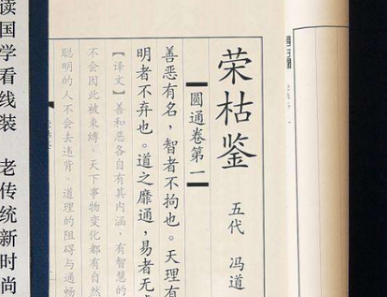 荣枯鉴
五代 冯道
圆通卷第一
善恶有名，智者不拘也。天理有
明者不弃也。道之靡通，易者无
【译文】善和恶各自有其内涵，有智慧的
不会因此被束缚。天下事物变化都有自然
聪明的人不会去违背。道理的阻碍与通畅
读国学看线装 老传统新时尚